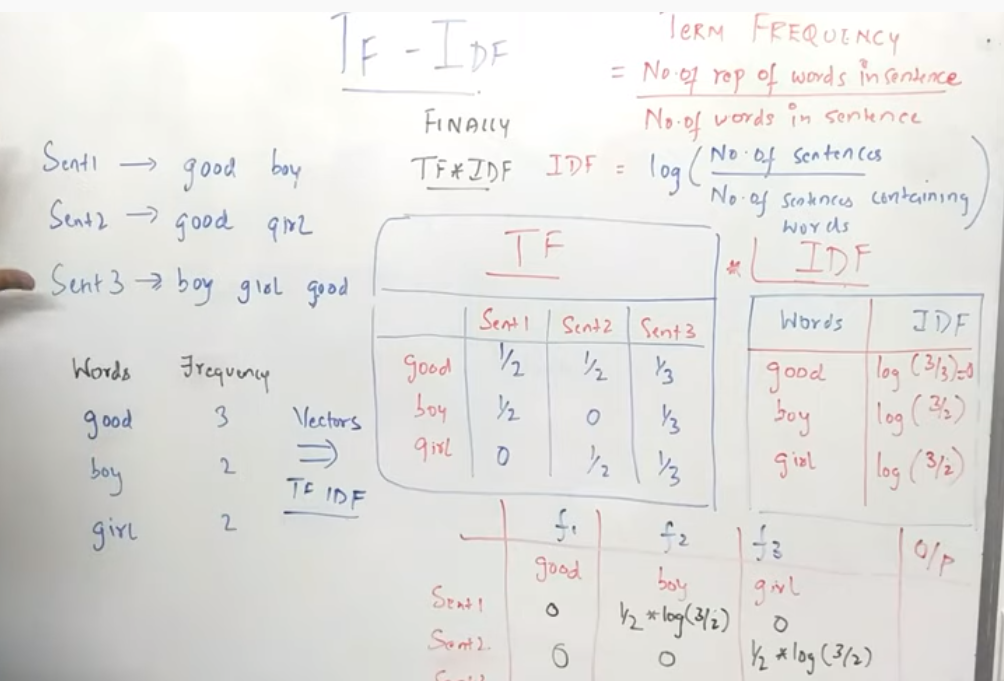 TF - IDF
TERM FREQUENCY
= No. of rep of words in sentence
No. of words in sentence
FINALLY
TF*IDF
IDF = log( No. of sentences
No. of sentences containing
words )
Sent1 → good boy
Sent2 → good girl
Sent 3 → boy girl good
Words Frequency
good 3
boy 2
girl 2
Vectors
⇒
TF IDF
TF
Sent1 Sent2 Sent3
good 1/2 1/2 1/3
boy 1/2 0 1/3
girl 0 1/2 1/3
* IDF
Words IDF
good log (3/3)=0
boy log (3/2)
girl log (3/2)
f1 f2 f3 O/P
good boy girl
Sent1 0 1/2 * log(3/2) 0
Sent2. 0 0 1/2 * log(3/2)